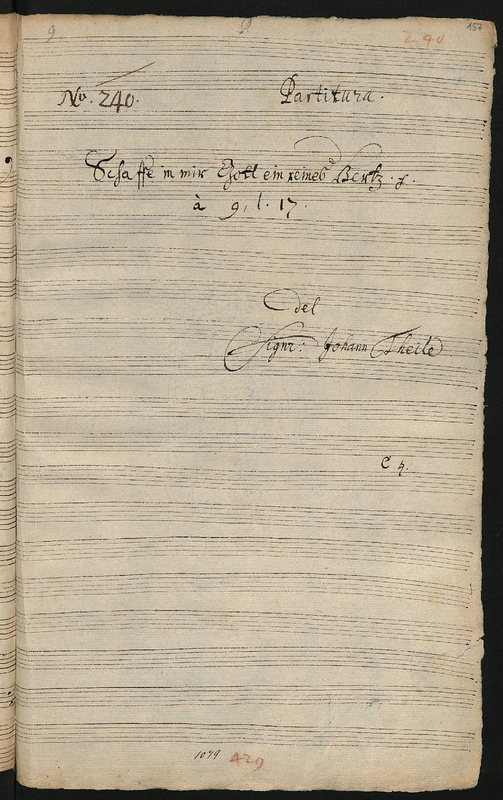 9
240
157
No. 240.
Partitura.
Schaffe in mir Gott ein reines Hertz.
à 9. l. 17.
del
Signr: Johann Theile
C
1079 429